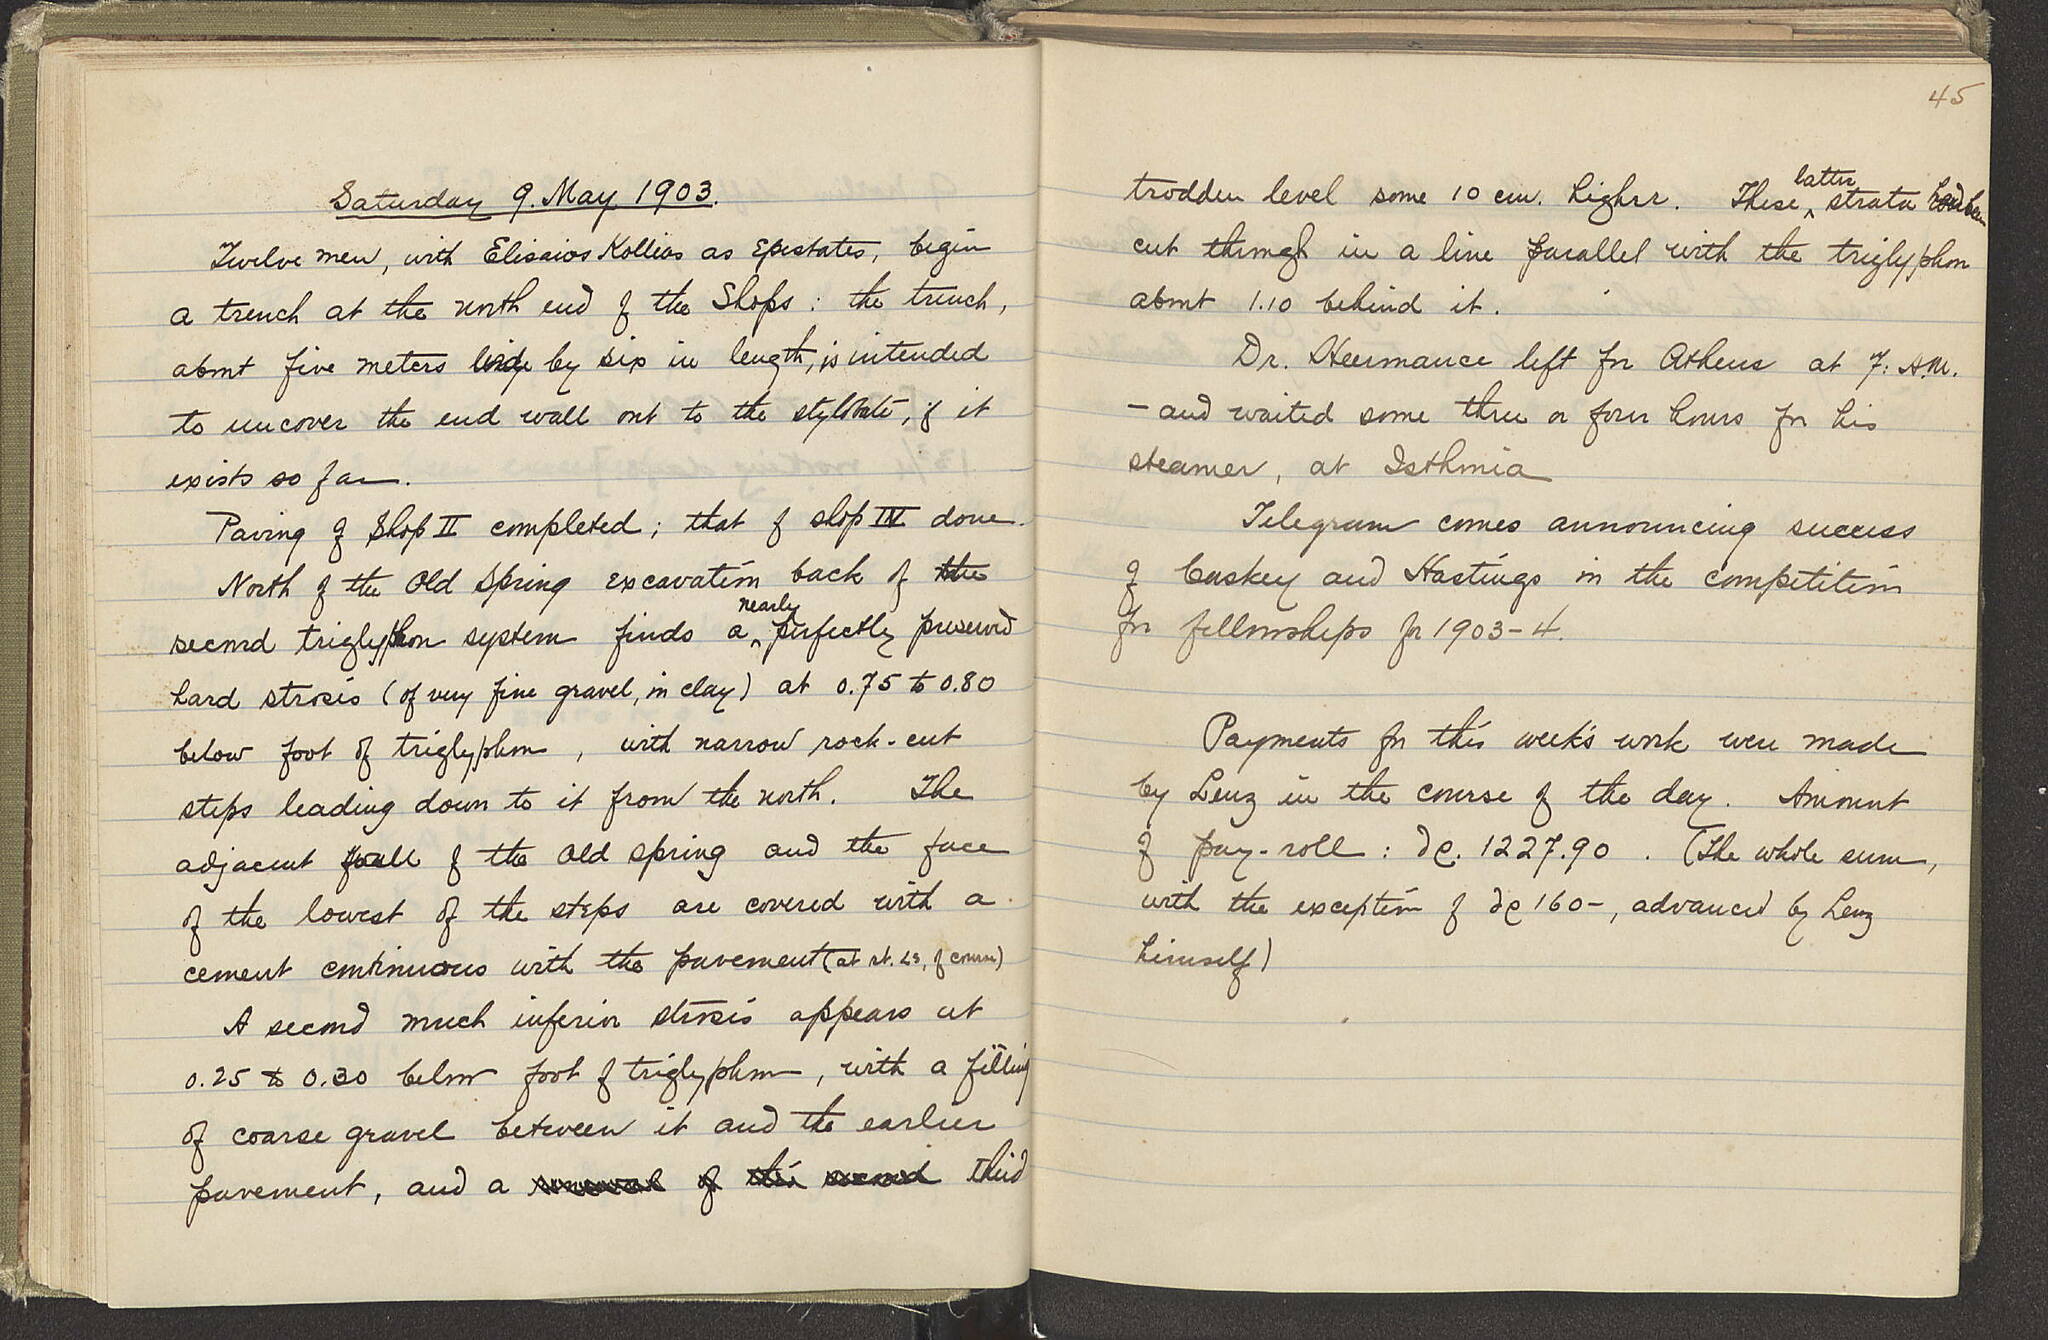 Saturday 9. May 1903.
Twelve men, with Elisaios Kollias as Epistates, begin
a trench at the north end of the Shops: the trench,
about five meters wide by six in length, is intended
to uncover the end wall out to the stylobate, if it
exists so far.
Paving of Shop II completed; that of shop IV done.
North of the Old Spring excavation back of the
second triglyphon system finds a nearly perfectly preserved
hard strosis (of very fine gravel, in clay) at 0.75 to 0.80
below foot of triglyphon, with narrow rock-cut
steps leading down to it from the north. The
adjacent wall of the old spring and the face
of the lowest of the steps are covered with a
cement continuous with the pavement (at rt. Ls, of course)
A second much inferior strosis appears at
0.25 to 0.30 below foot of triglyphon, with a filling
of coarse gravel between it and the earlier
pavement, and a renewal of this second third
45
trodden level some 10 cm. higher. These latter strata had been
cut through in a line parallel with the triglyphon
about 1.10 behind it.
Dr. Heermance left for Athens at 7: A.M.
– and waited some three or four hours for his
steamer, at Isthmia
Telegram comes announcing success
of Caskey and Hastings in the competition
for fellowships for 1903-4.
Payments for this week's work were made
by Lenz in the course of the day. Amount
of pay-roll: δρ. 1227.90. (The whole sum,
with the exception of δρ 160–, advanced by Lenz
himself)